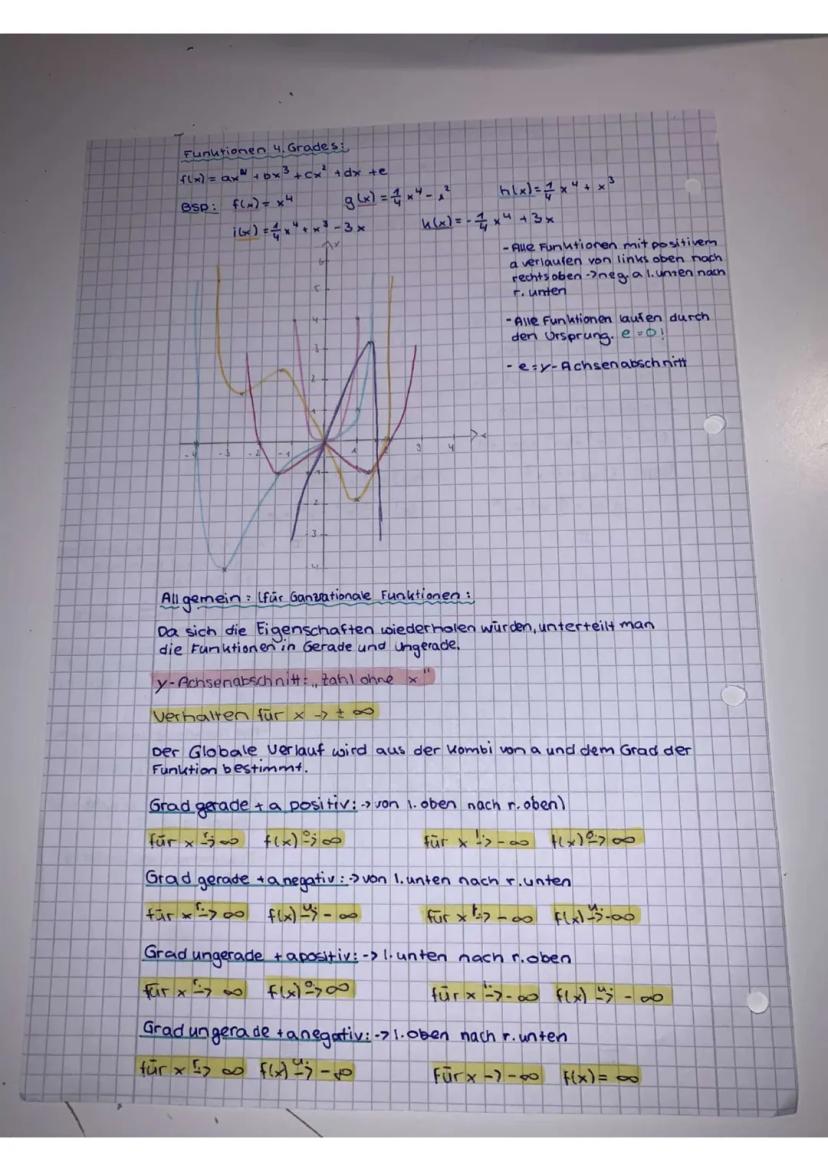 Funktionen 4. Grades:
f(x) = ax⁴ + bx³ + cx² + dx + e
Bsp: f(x) = x⁴ g(x) = 1/4 x⁴ - x² h(x) = 1/4 x⁴ + x³
i(x) = 1/4 x⁴ + x³ - 3x k(x) = - 1/4 x⁴ + 3x
- Alle Funktionen mit positivem
a verlaufen von links oben nach
rechts oben -> neg. a l. unten nach
r. unten
- Alle Funktionen laufen durch
den Ursprung. e = 0!
- e = y-Achsenabschnitt
y
6
5
4
3
2
1
-4 -3 -2 -1 1 3 4 x
-1
-2
-3
-4
Allgemein: (für Ganzrationale Funktionen:
Da sich die Eigenschaften wiederholen würden, unterteilt man
die Funktionen in Gerade und ungerade.
y-Achsenabschnitt: „zahl ohne x"
Verhalten für x -> ± ∞
Der Globale Verlauf wird aus der Kombi von a und dem Grad der
Funktion bestimmt.
Grad gerade + a positiv: -> von l. oben nach r. oben)
für x r.-> ∞ f(x) o.-> ∞ für x l.-> - ∞ f(x) o.-> ∞
Grad gerade + a negativ: -> von l. unten nach r. unten
für x r.-> ∞ f(x) u.-> - ∞ für x l.-> - ∞ f(x) u.-> - ∞
Grad ungerade + a positiv: -> l. unten nach r. oben
für x r.-> ∞ f(x) o.-> ∞ für x l.-> - ∞ f(x) u.-> - ∞
Grad ungerade + a negativ: -> l. oben nach r. unten
für x r.-> ∞ f(x) u.-> - ∞ Für x -> - ∞ f(x) = ∞